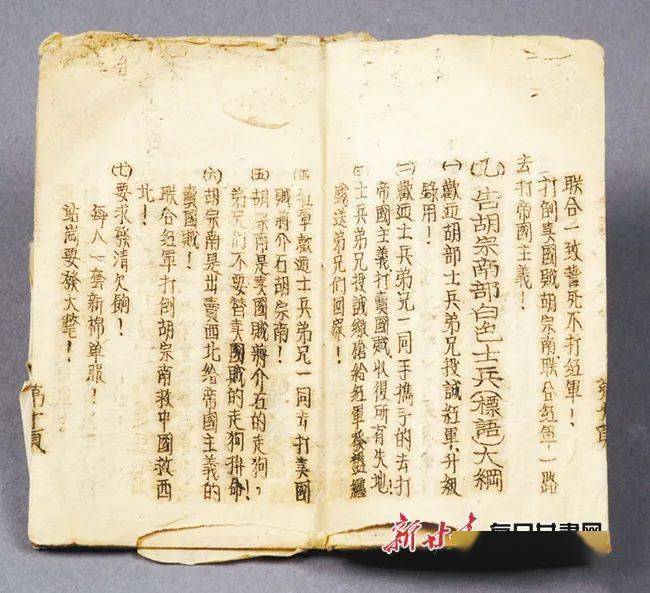 第九頁
聯合一致誓死不打紅軍！
打倒賣國賊胡宗南聯合紅軍一路
去打帝國主義！
(九)告胡宗南部白色士兵(標語)大綱
(一)歡迎胡部士兵弟兄投誠紅軍升級
錄用！
(二)歡迎士兵弟兄一同手攜手的去打
帝國主義打賣國賊收復所有失地！
(三)士兵弟兄投誠繳槍給紅軍發盤纏
送弟兄們回家！
(四)紅軍歡迎弟兄一同去打賣國
賊蔣介石胡宗南！
(五)胡宗南是賣國賊蔣介石的走狗，
弟兄們不要替賣國賊的走狗拚命！
(六)胡宗南是出賣西北給帝國主義的
賣國賊！
聯合紅軍打倒胡宗南救中國救西
北！
(七)要求發清欠餉！
每人一套新棉單服！
站崗要發大氅！
第十頁
新甘肃
每日甘肃网